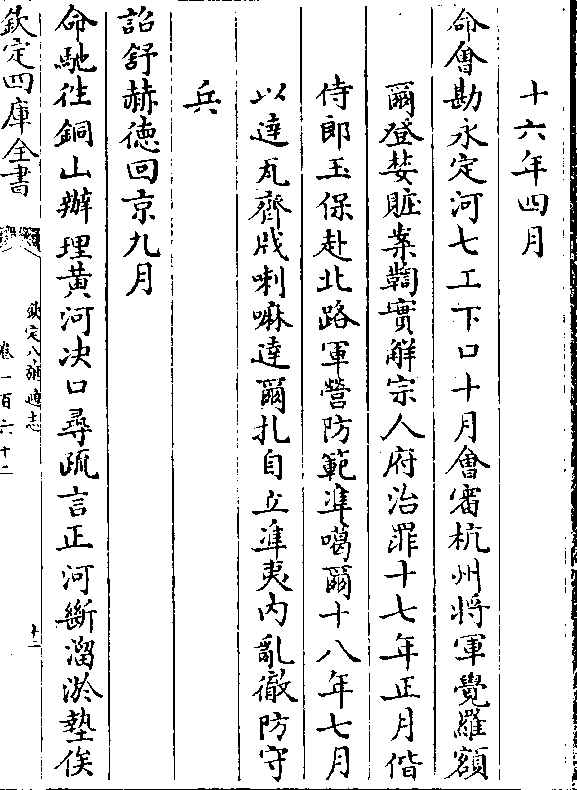 十六年四月
命會勘永定河七工下口十月會審杭州將軍覺羅額
爾登婪贓案鞫實解宗人府治罪十七年正月偕
侍郎玉保赴北路軍營防範準噶爾十八年七月
以達瓦齊戕喇嘛達爾扎自立準夷内亂徹防守
兵
詔舒赫徳回京九月
命馳往銅山辦理黄河决口尋疏言正河斷溜淤墊俟
欽定四庫全書
欽定八旗通志
卷一百六十二
十二